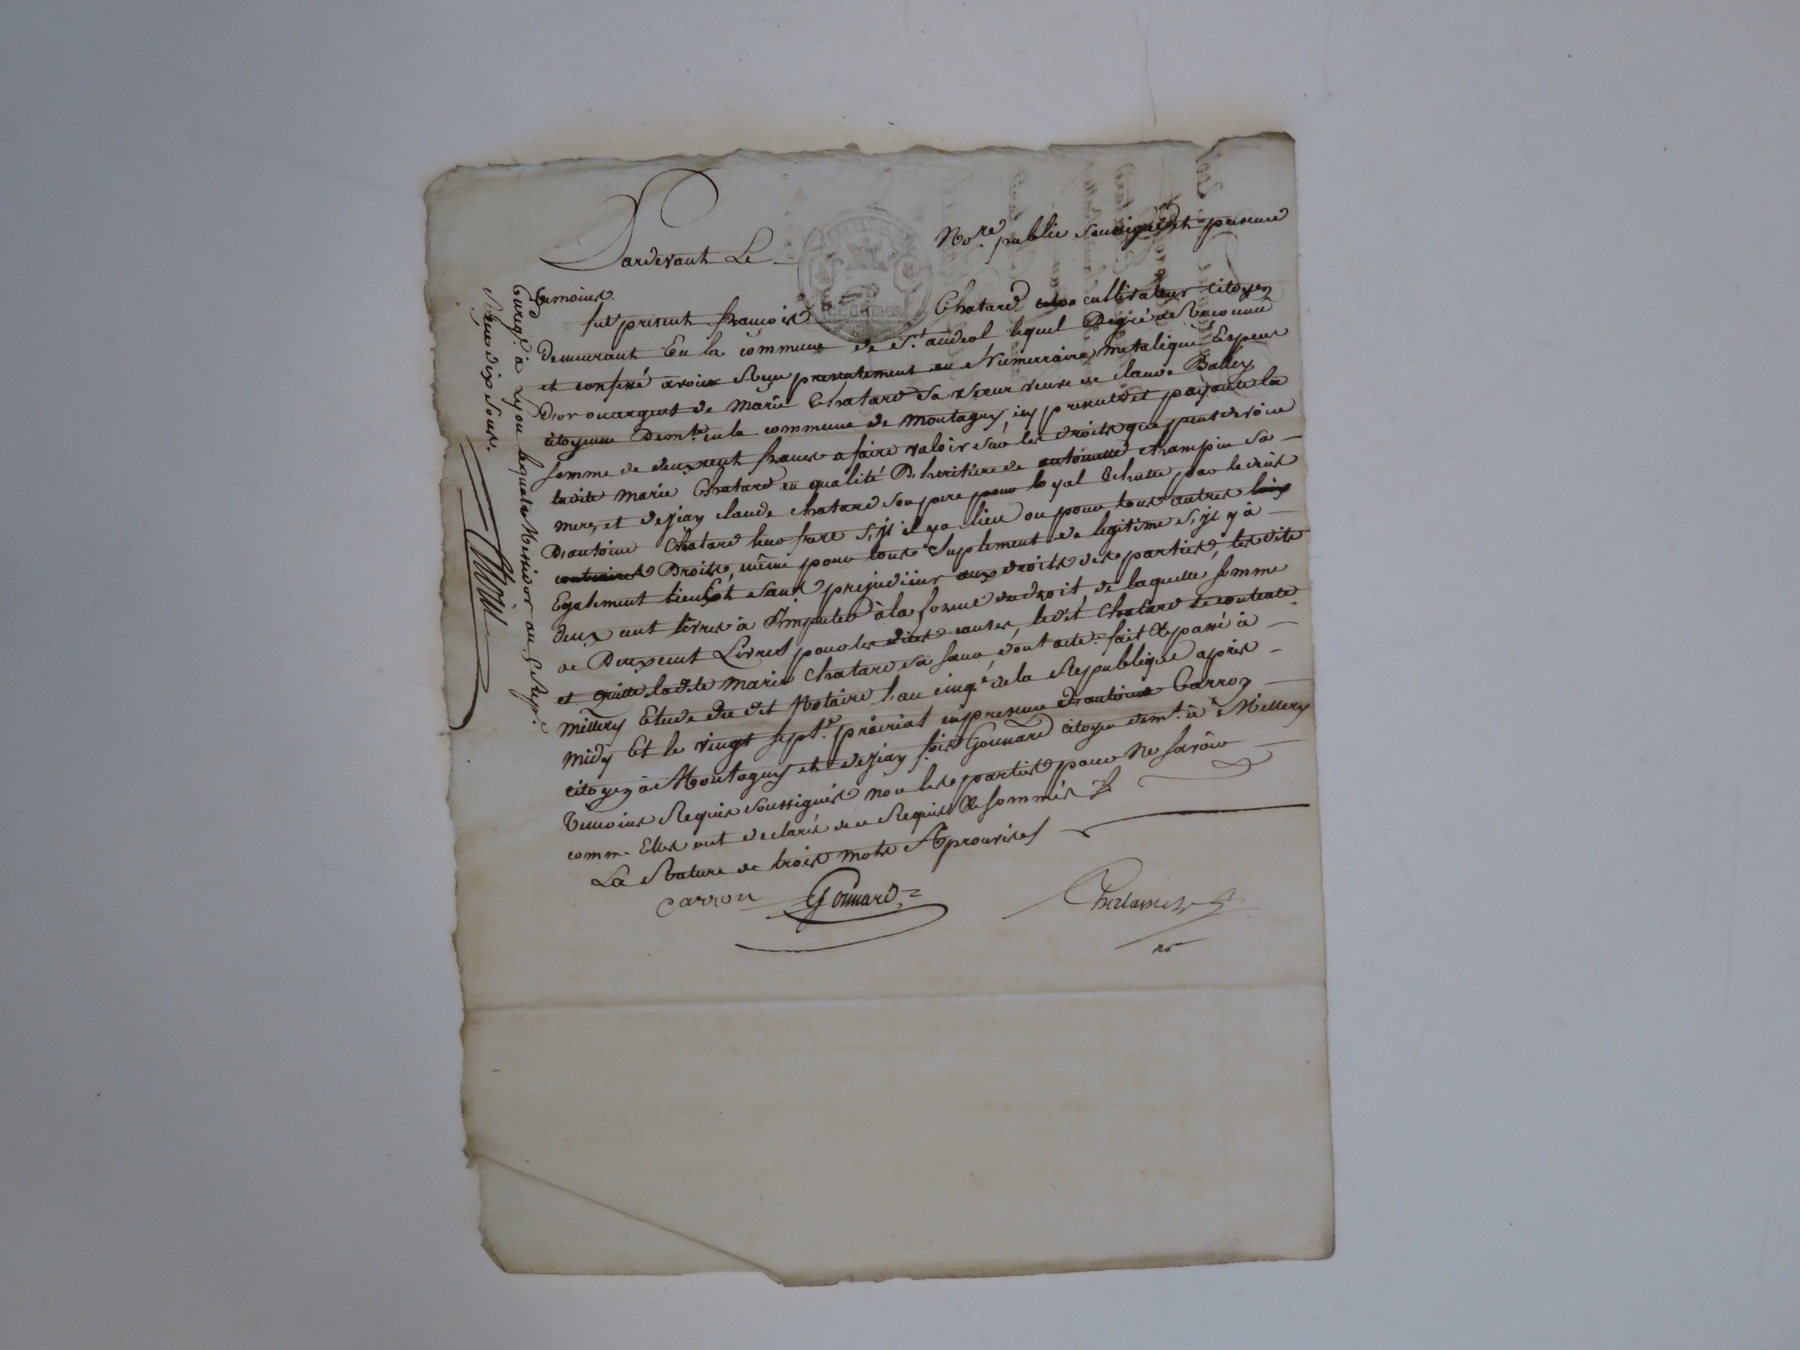 Pardevant Le Nore. public soussigné et presence
temoins.
fut present francois Chatard cultivateur citoyen
demeurant En la commune de St. andeol lequel De gré a Reconnu
et confessé avoir Reçu presentement en Numerraire metalique Espece
D'or ou argent de Marie Chatard sa sœur veuve de claude Balley
citoyenne Demte. en la commune de Montagny icy presente et payante la
somme de deux cent francs a faire valoir sur les droits que peut devoir
ladite Marie Chatard en qualité D'heritiere de antoinette champin sa
mere, et de jean claude chatard son pere pour loyal Echutte par le deces
D'antoine Chatard leur frere s'yl il y a lieu ou pour tous autres
Droits, même pour tous suplement de legitime s'yl y à
Egalement lieu, et sans prejudicier aux droits des parties, lesdits
deux cent livres à s'imputer à la forme du droit, de laquelle somme
de Deux cent Livres pour les dites causes, ledit Chatard se contente
et quitte ladite Marie Chatard sa sœur, dont acte. fait et passé à
Millery Etude du dit Notaire l'an cinqe. de la Republique après
midy Et le vingt sept. prairial en presence d'antoine Carron
citoyen à Montagny et de jean fois Gonnard citoyen demt. à Millery
temoins Requis soussignés non les parties pour ne savoir
comme Elles ont declarés de ce Requis et sommés
La Rature de trois mots Aprouvées
carron Gonnard
Enregé. à Lyon le quatre Messidor an 5 Rep.
Reçu dix sous.